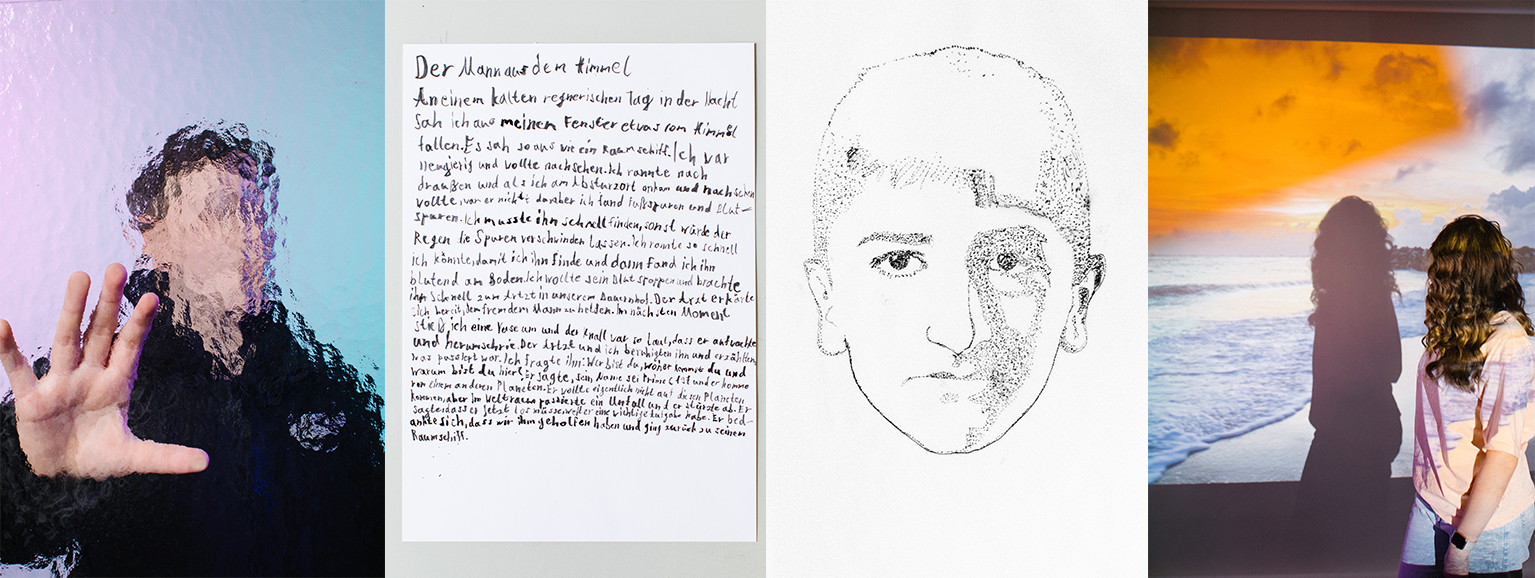 Der Mann aus den Himmel
An einem kalten regnerischen Tag in der Nacht
sah ich aus meinem Fenster etwas vom Himmel
fallen. Es sah so aus wie ein Raumschiff. Ich war
neugierig und wollte nachsehen. Ich rannte nach
draußen und als ich am Absturzort ankam und nachsehen
wollte, war er nicht da aber ich fand Fußspuren und Blut-
spuren. Ich musste ihn schnell finden, sonst würde der
Regen die Spuren verschwinden lassen. Ich rannte so schnell
ich könnte, damit ich ihn finde und dann fand ich ihn
blutend am Boden. Ich wollte sein Blut stoppen und brachte
ihn schnell zum Artzt in unserem Bauernhof. Der Arzt erklärte
sich bereit, dem fremdem Mann zu helfen. Im nächsten Moment
stieß, ich eine Vase um und der Knall war so laut, dass er aufwachte
und herumschrie. Der Artzt und ich beruhigten ihn und erzählten,
was passiert war. Ich fragte ihn: Wer bist du, woher kommst du und
warum bist du hier? Er sagte, sein Name sei Prime und er komme
von einem anderen Planeten. Er wollte eigentlich nicht auf diesen Planeten
kommen, aber im Weltraum passierte ein Unfall und er stürzte ab. Er
sagte, dass er jetzt los müsse, weil er eine wichtige Aufgabe habe. Er bed-
ankte sich, dass wir ihm geholfen haben und ging zurück zu seinem
Raumschiff.